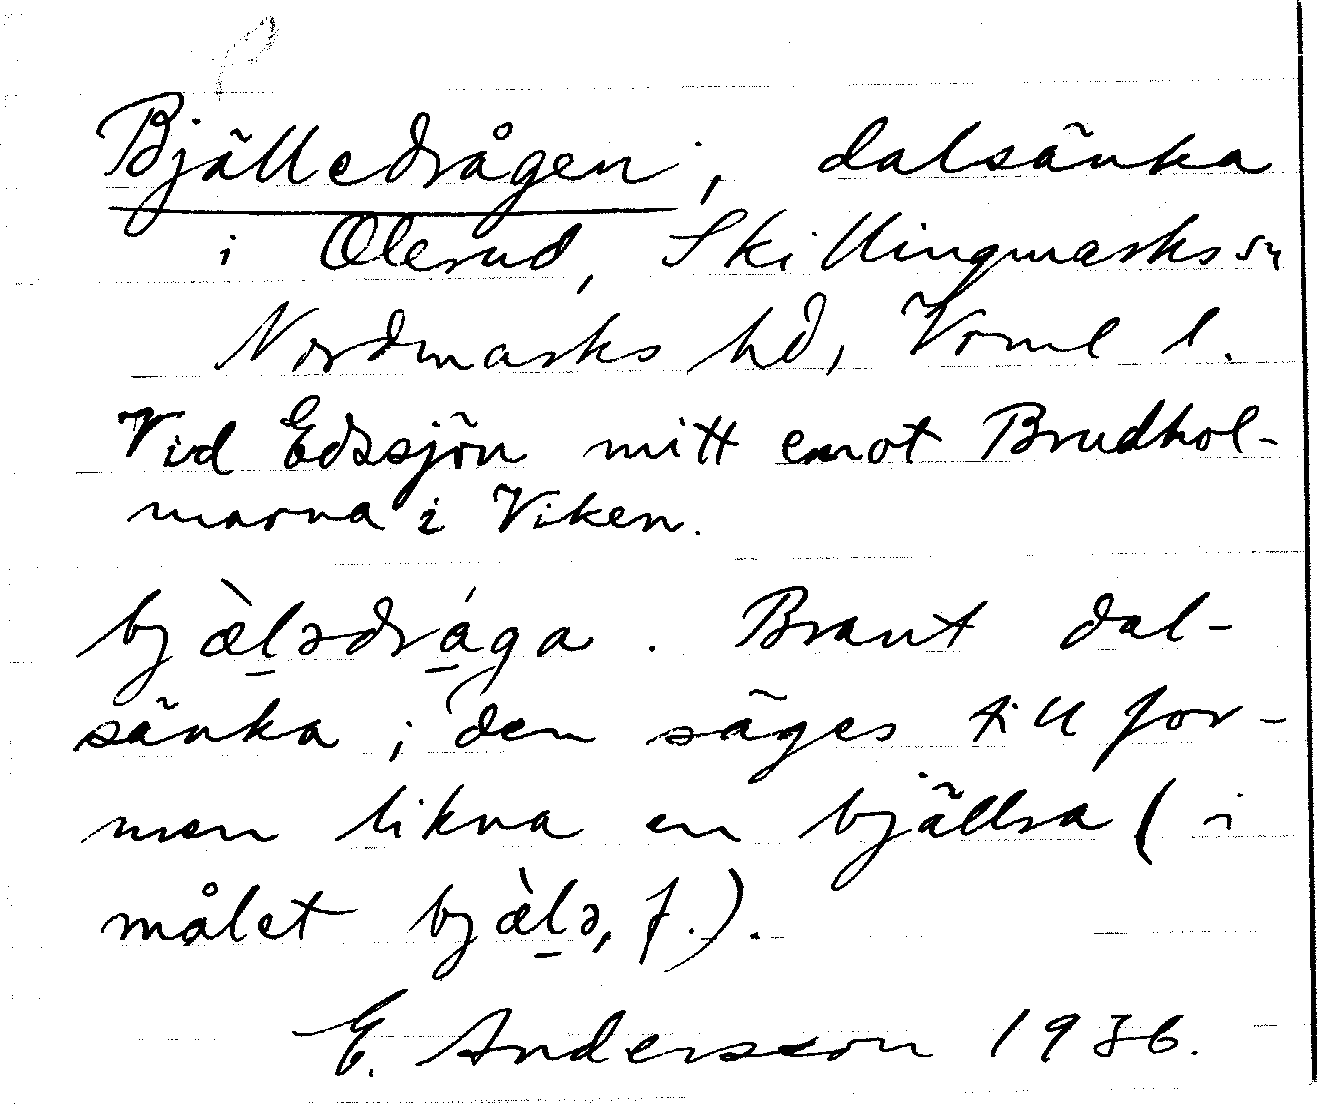 Bjälledrågen, dalsänka
i Olerud, Skillingmarks sn
Nordmarks hd, Vrml l.
Vid Edssjön mitt emot Brudhol-
marna i Viken.
bjæ̀l̠ədrá̠ga. Brant dal-
sänka; den säges till for-
men likna en bjällra (i
målet bjæ̀l̠ə, f.).
E. Andersson 1936.